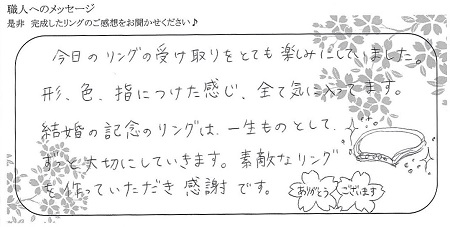 職人へのメッセージ
是非 完成したリングのご感想をお聞かせください♪
今日のリングの受け取りをとても楽しみにしていました。
形、色、指につけた感じ、全て気に入ってます。
結婚の記念のリングは、一生ものとして、
ずっと大切にしていきます。素敵なリング
を作っていただき感謝です。
ありがとう ございます